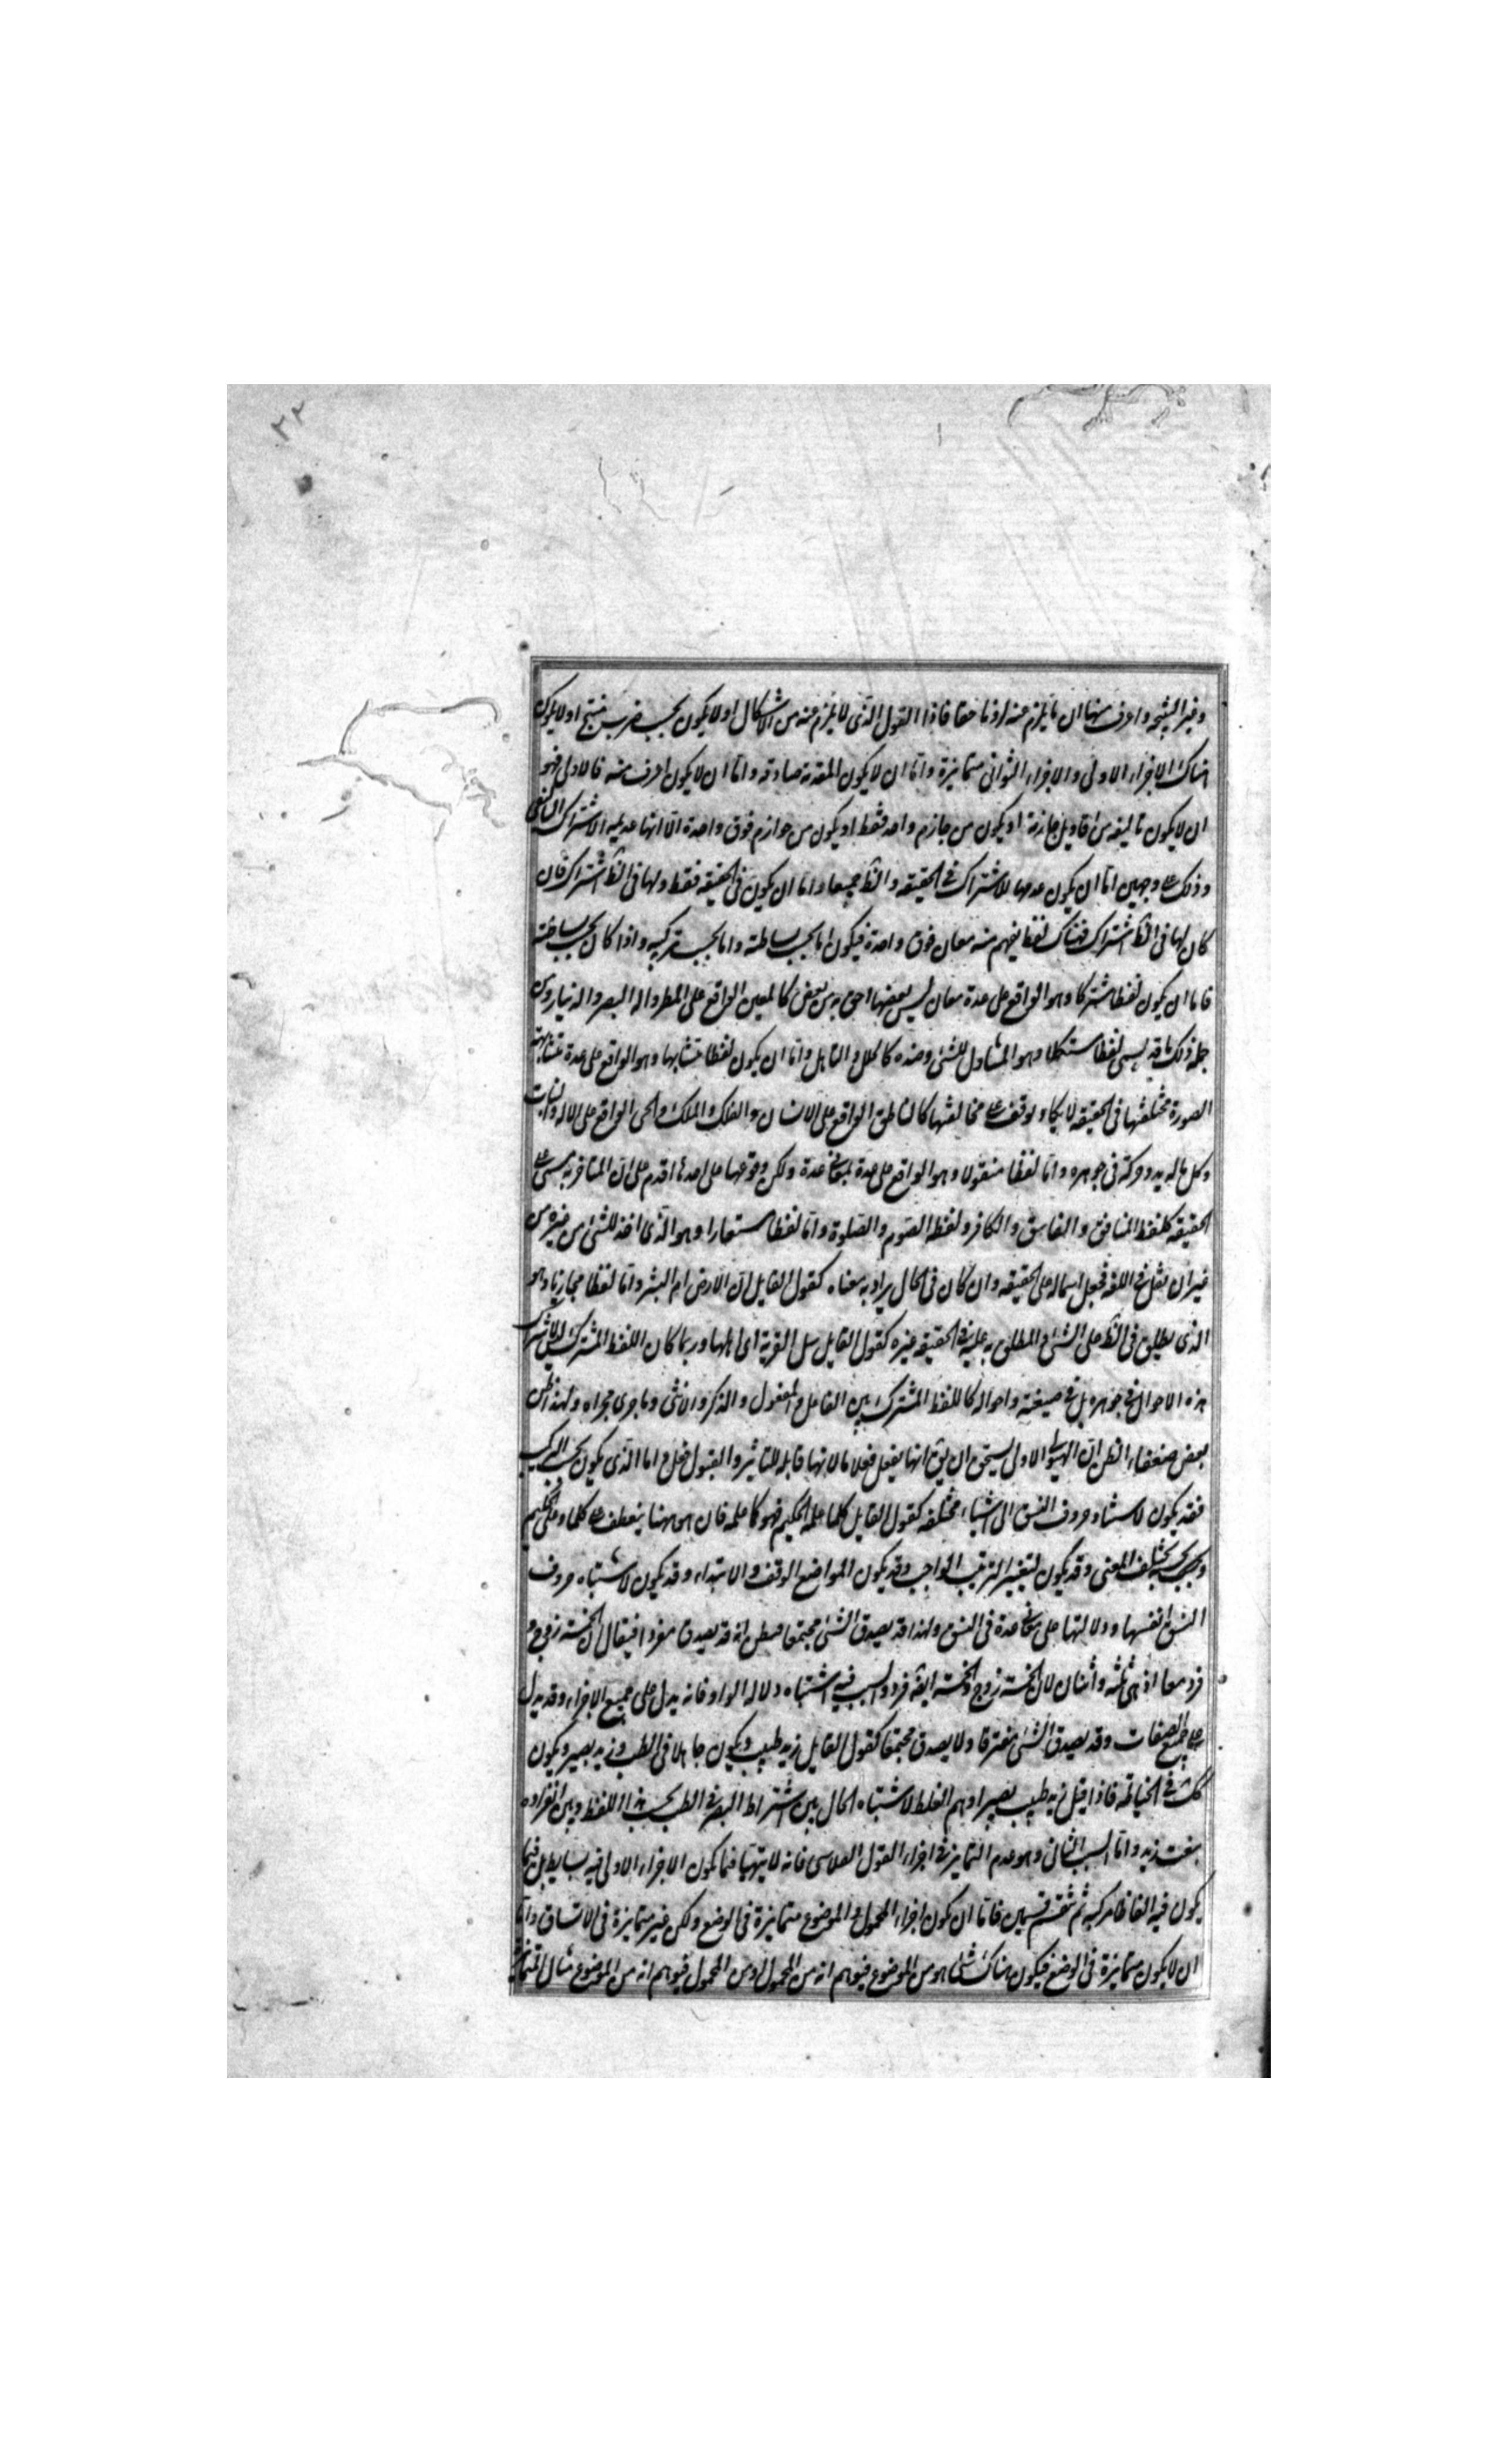 ٢٢
وغير النتيجة واعرف منها ان ما يلزم عنه لزوما حقا فاذا القول الذى لا يلزم عنه من الاشكال او لا يكون بحسب ضرب منتج او لا يكون
هناك الاجزاء الاولى والاجزاء الثوانى متمايزة واما ان لا يكون المقدمة صادقة واما ان لا يكون اعرف منه فالاول فهو
ان لا يكون تاليفه من اقاويل جازمة او يكون من جازم واحد فقط او يكون من جوازم فوق واحدة الا انها عديمه الاشتراك التاليفى
وذلك على وجهين اما ان يكون عدمها للاشتراك فى الحقيقه والظ جميعا واما ان يكون فى الحقيقه فقط ولها فى الظ اشتراك فان
كان لها فى الظ اشتراك فهناك لفظ يفهم منه معان فوق واحدة فيكون اما بحسب بساطته واما بحسب تركيبه واذا كان بحسب بساطته
فاما ان يكون لفظا مشتركا وهو الواقع على عدة معان ليس بعضها احق به من بعض كالعين الواقع على المطر واله البصر والدينار ومن
جملة ذلك ما قد يسمى لفظا مشككا وهو المتناول للشئ وضده كالجلل والناهل واما ان يكون لفظا متشابها وهو الواقع على عدة متشابهة
الصورة مختلفتها فى الحقيقه لا يكاد يوقف على مخالفتها كالناطق الواقع على الانسان والفلك والملك والحى الواقع على الاله والنبات
وكل ما له يد وحركة فى جوهره واما لفظا منقولا وهو الواقع على عدة بمعانى عدة ولكن وقوعها على احدها اقدم على ان المتاخر به يسمى على
الحقيقه كلفظ المنافق والفاسق والكافر ولفظه الصوم والصلوة واما لفظا مستعارا وهو الذى اخذ للشئ من غيره من
غير ان نقل فى اللغه فجعل اسما له على الحقيقه وان كان فى الحال يراد به معناه كقول القايل ان الارض ام البشر واما لفظا مجازيا وهو
الذى يطلق فى الظ على الشئ والمطلق به عليه فى الحقيقه غيره كقول القايل سل القرية اى اهلها وربما كان اللفظ المشترك لا يشترك
هذه الاحوال فى جوهره بل فى صيغته واحواله كاللفظ المشترك بين الفاعل والمفعول والذكر والانثى وما جرى مجراه ولهذا ظن
بعض ضعفاء النظر ان الهيولى الاولى يستحق ان يق انها يفعل فعلا ما لانها قابله للتاثير والقبول فعل واما الذى يكون بحسب التركيب
فقد يكون لاستناد حروف النسق الى اشياء مختلفه كقول القايل كلما علمه الحكيم فهو كما علمه فان هو ههنا ينعطف على كلما وعلى الحكيم
وبحسبه يختلف المعنى وقد يكون لتغيير الترتيب الواجب وقد يكون المواضع الوقف والابتداء وقد يكون لاشتباه حروف
النسق انفسها ودلالتها على معانى عدة فى النسق ولهذا قد يصدق الشئ مجتمعا فيظن انه قد يصدق مفردا فيقال ان الخمسة زوج و
فرد معا اذ هى ثلثه واثنان لان الخمسة زوج والخمسة ايضه فرد والسبب فيه اشتباه دلاله الواو فانه يدل على جميع الاجزاء وقد يدل
على جميع الصفات وقد يصدق الشئ مفترقا ولا يصدق مجتمعا كقول القايل زيد طبيب ويكون جاهلا فى الطب وزيد بصير ويكون
كك فى الخياطة فاذا قيل زيد طبيب بصير اوهم الغلط لاشتباه الحال بين اشتراط البصر فى الطب بحسب هذا اللفظ وبين انفراده
بنعت زيد واما السبب الثانى وهو عدم التمايز فى اجزاء القول القياسى فانه لا يتهيا فيما يكون الاجزاء الاولى فيه بسايط بل فيما
يكون فيه الفاظا مركبه ثم تنقسم قسمين فاما ان يكون اجزاء المحمول والموضوع متمايزة فى الوضع ولكن غير متمايزة فى الاتساق واما
ان لا يكون متمايزة فى الوضع فيكون هناك شئ هو من الموضوع فيوهم انه من المحمول او من المحمول فيوهم انه من الموضوع مثال المتمايز